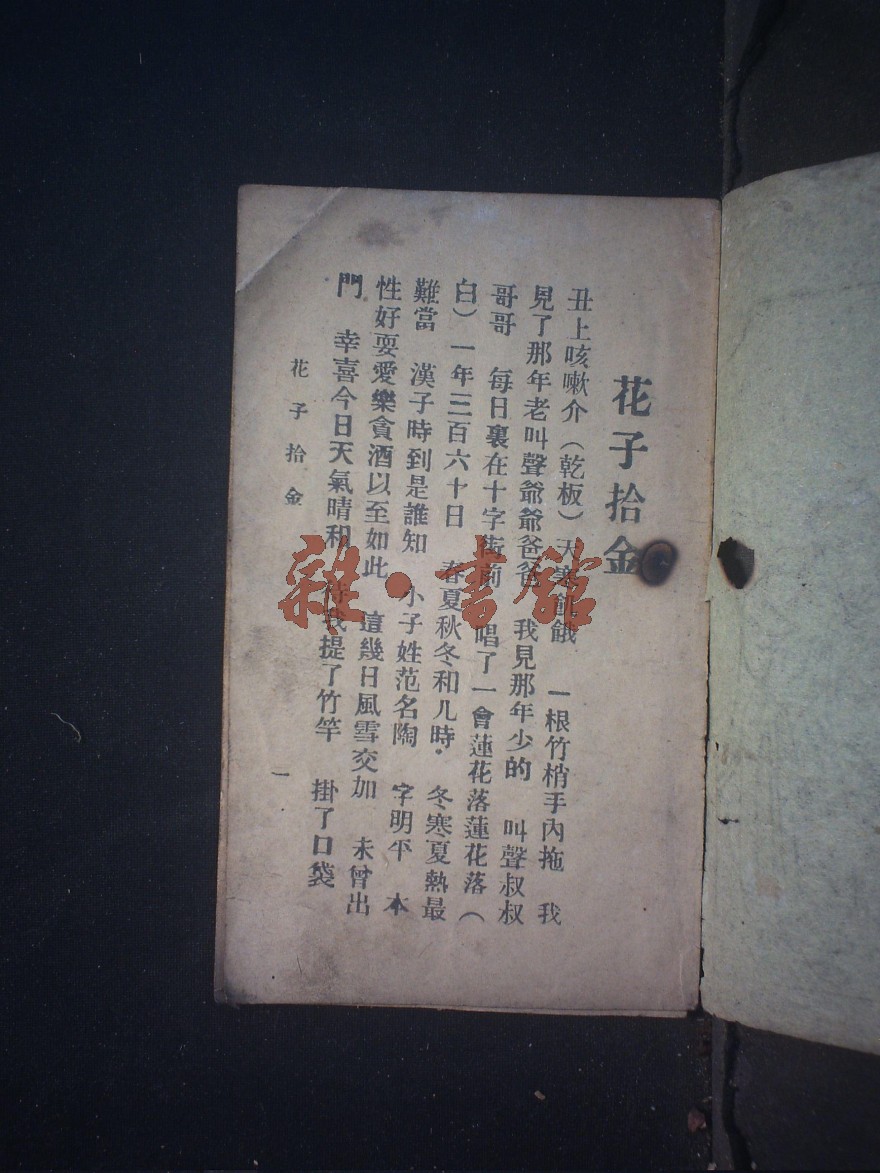 花子拾金
丑上咳嗽介（乾板）天寒飢餓 一根竹梢手內拖 我
見了那年老叫聲爺爺爸爸 我見那年少的 叫聲叔叔
哥哥 每日裏在十字街前 唱了一會蓮花落蓮花落（
白）一年三百六十日 春夏秋冬和几時· 冬寒夏熱最
難當 漢子時到是誰知 小子姓范名陶 字明平 本
性好耍愛樂貪酒以至如此 這幾日風雪交加 未曾出
門 幸喜今日天氣晴和 待我提了竹竿 掛了口袋
花子拾金
一
雜·書館